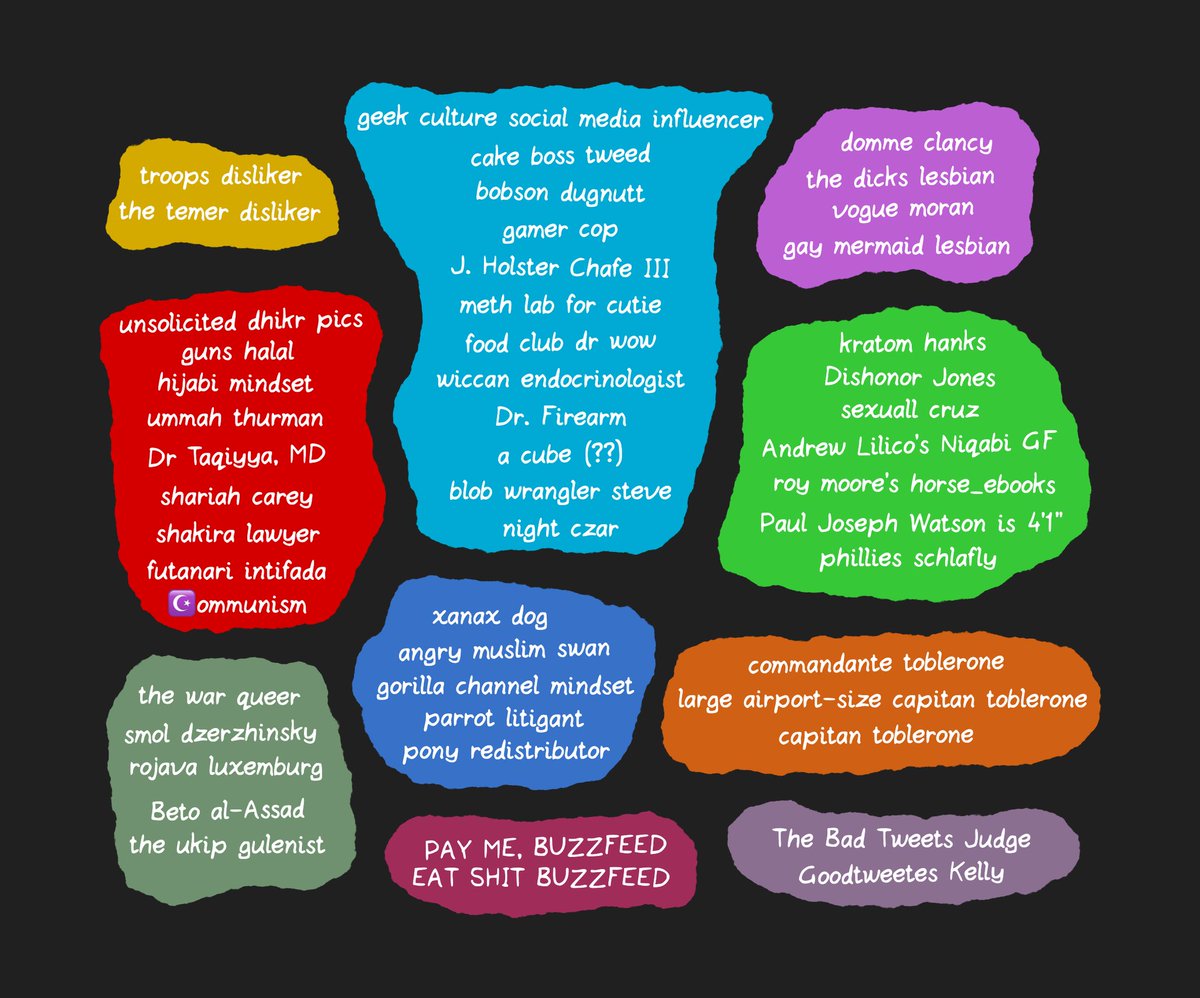 troops disliker
the temer disliker
geek culture social media influencer
cake boss tweed
bobson dugnutt
gamer cop
J. Holster Chafe III
meth lab for cutie
food club dr wow
wiccan endocrinologist
Dr. Firearm
a cube (??)
blob wrangler steve
night czar
domme clancy
the dicks lesbian
vogue moran
gay mermaid lesbian
unsolicited dhikr pics
guns halal
hijabi mindset
ummah thurman
Dr Taqiyya, MD
shariah carey
shakira lawyer
futanari intifada
☪️ommunism
kratom hanks
Dishonor Jones
sexuall cruz
Andrew Lilico's Niqabi GF
roy moore's horse_ebooks
Paul Joseph Watson is 4'1"
phillies schlafly
the war queer
smol dzerzhinsky
rojava luxemburg
Beto al-Assad
the ukip gulenist
xanax dog
angry muslim swan
gorilla channel mindset
parrot litigant
pony redistributor
commandante toblerone
large airport-size capitan toblerone
capitan toblerone
PAY ME, BUZZFEED
EAT SHIT BUZZFEED
The Bad Tweets Judge
Goodtweetes Kelly